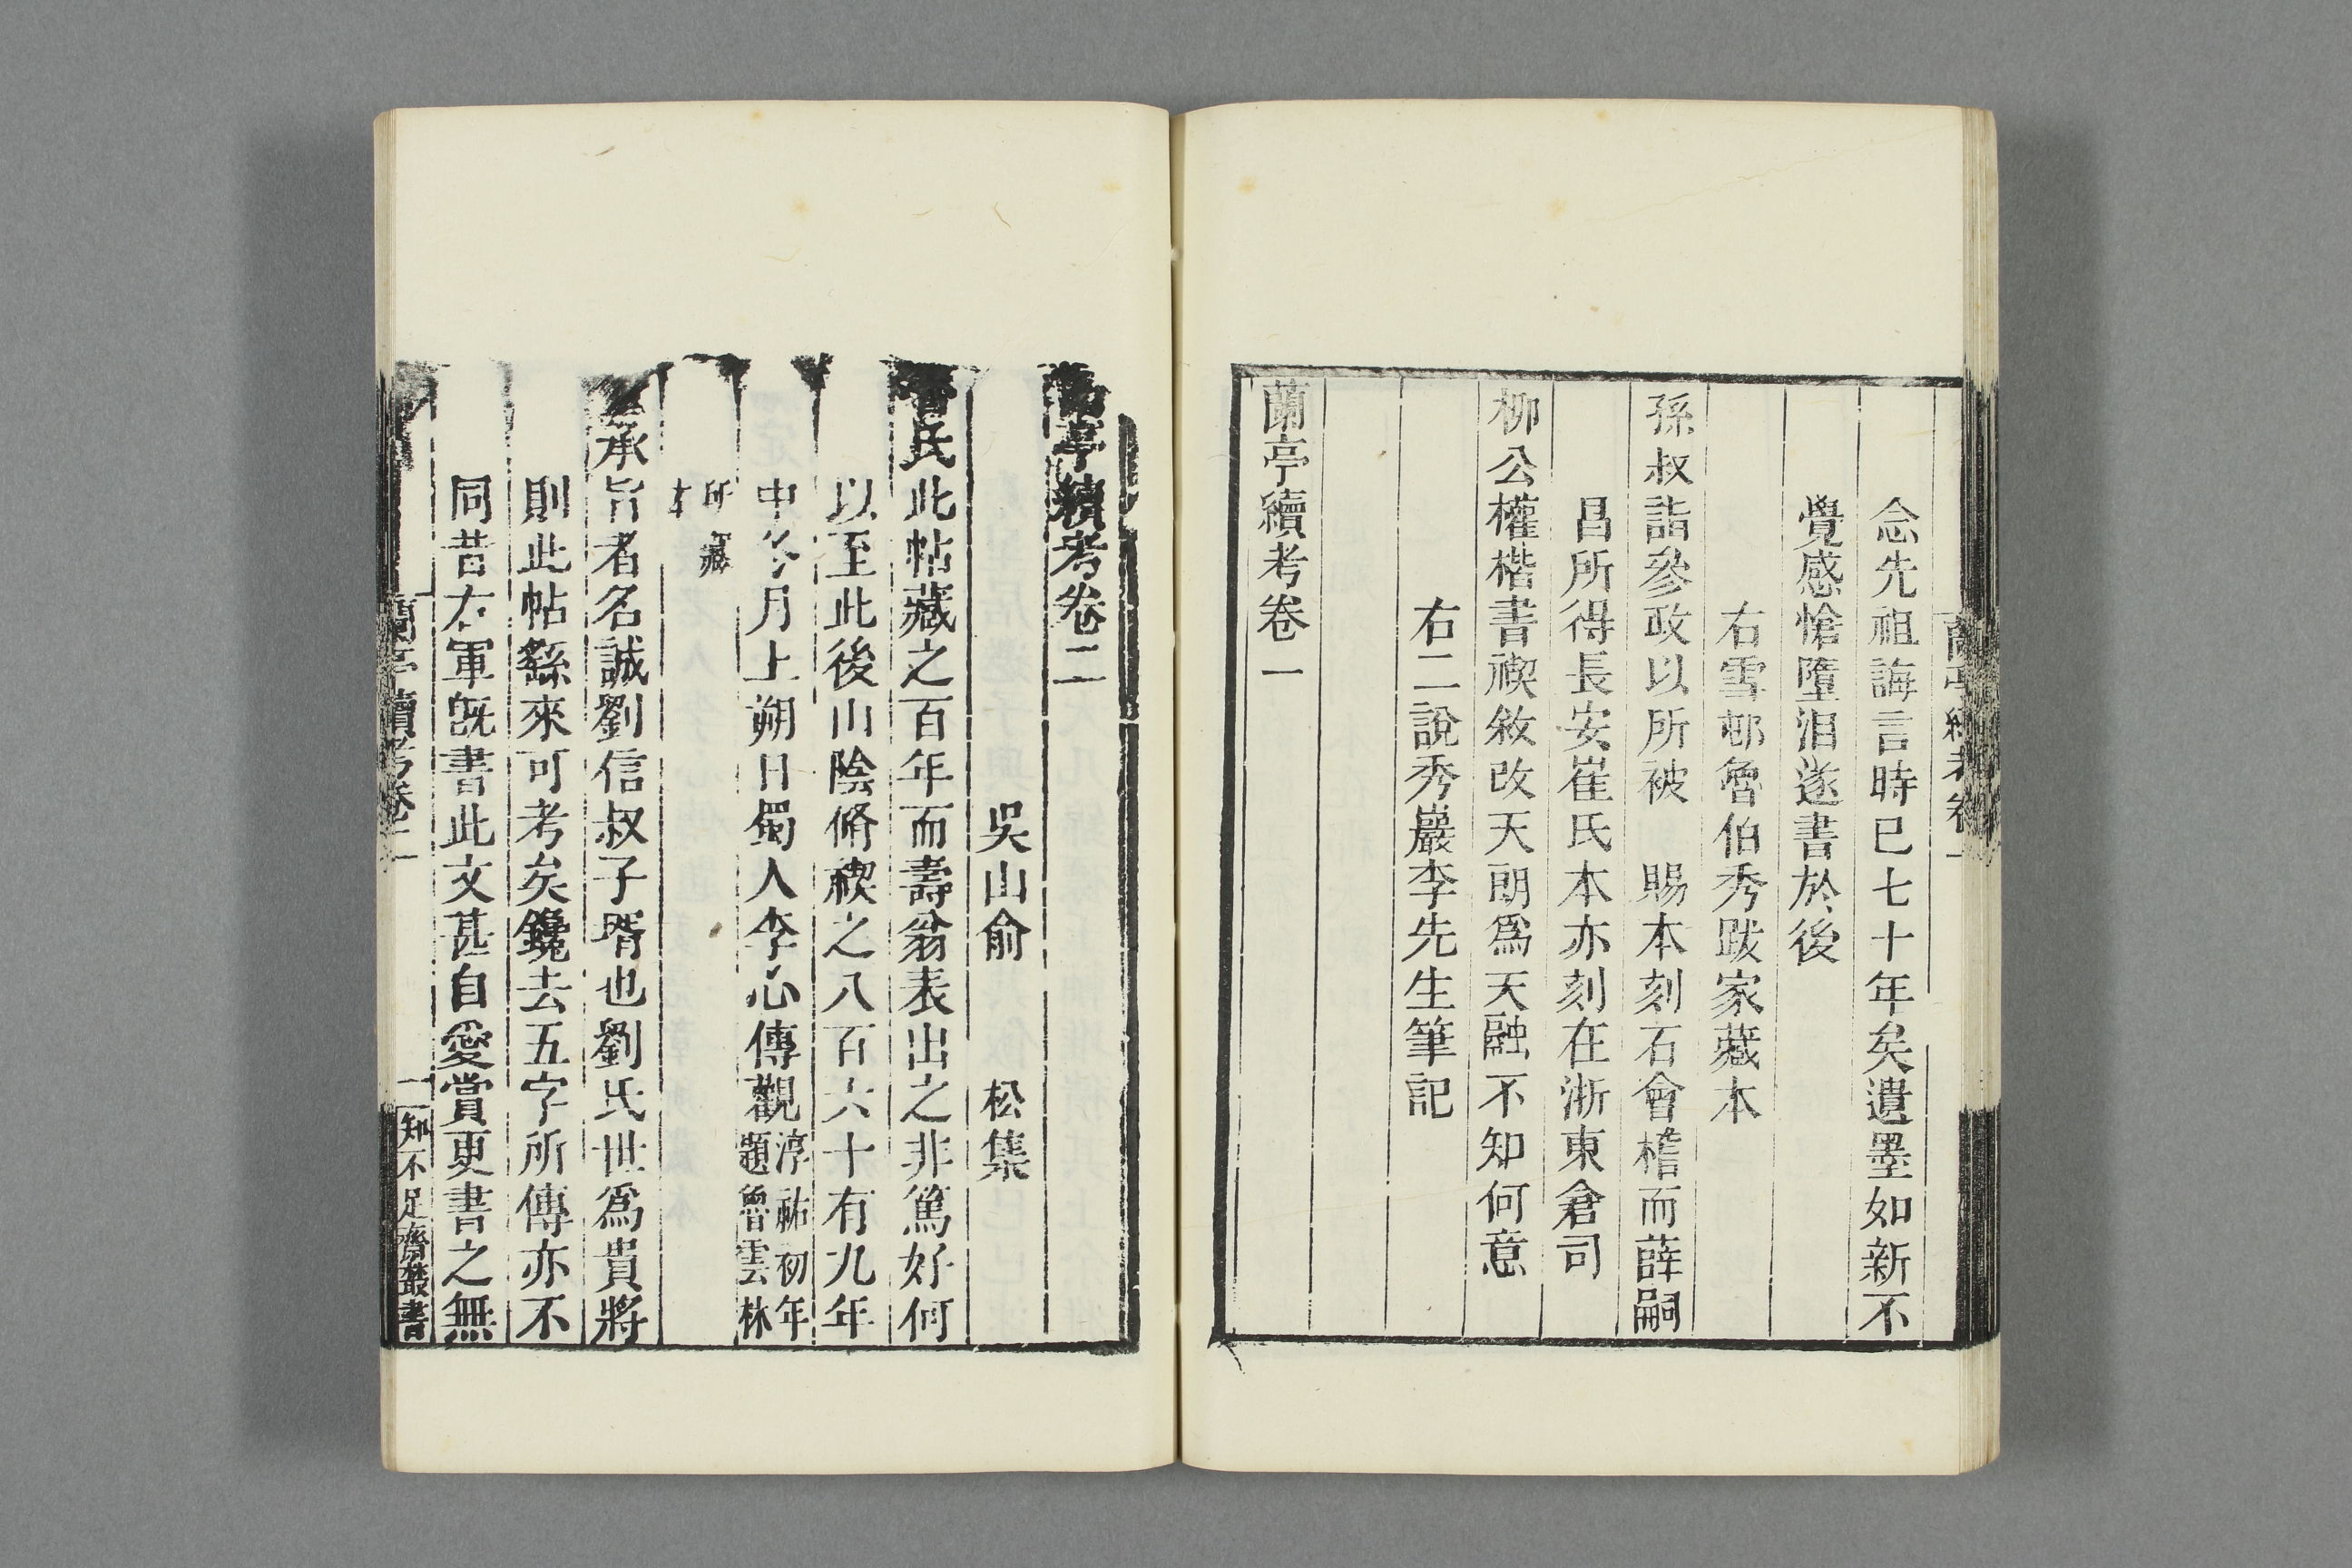 念先祖誨言時已七十年矣遺墨如新不
覺感愴墮淚遂書於後
右雪邨魯伯秀跋家藏本
孫叔詣參政以所被　賜本刻石會稽而薛嗣
昌所得長安崔氏本亦刻在浙東倉司
柳公權楷書禊敘改天朗爲天融不知何意
右二說秀巖李先生筆記
蘭亭續考卷一
蘭亭續考卷二
吳山俞　松集
氏此帖藏之百年而壽翁表出之非篤好何
以至此後山陰脩禊之八百六十有九年
中冬月上朔日蜀人李心傳觀淳祐初年題魯雲林
所藏本
承旨者名誠劉信叔子壻也劉氏世爲貴將
則此帖繇來可考矣鑱去五字所傳亦不
同昔右軍旣書此文甚自愛賞更書之無
蘭亭續考卷二
一
知不足齋叢書